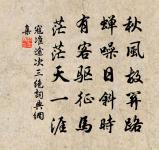 秋風故路
蟬噪日斜時
有客驅征馬
茫茫天一涯
寇准途次三絕詞典網
集